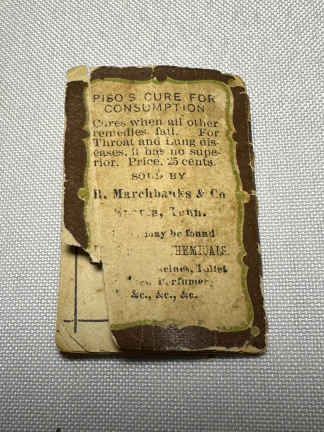 PISO'S CURE FOR
CONSUMPTION
Cures when all other
remedies fail. For
Throat and Lung dis-
eases, it has no supe-
rior. Price, 25 cents.
SOLD BY
R. Marchbanks & Co
Tenn.
may be found
HEMICALS
cines, Toilet
Perfumer
&c., &c., &c.